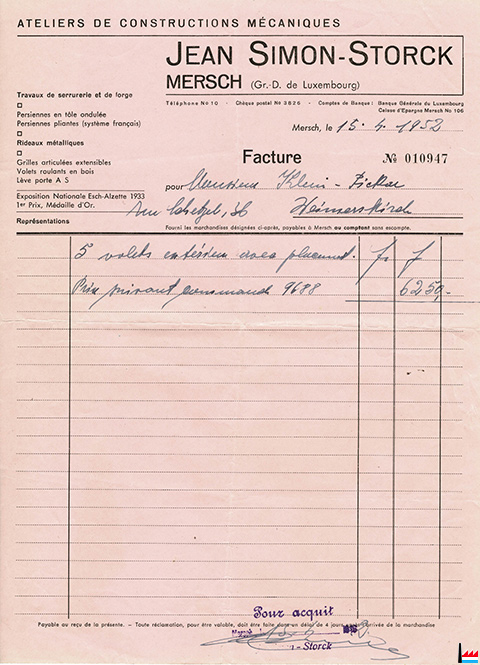 ATELIERS DE CONSTRUCTIONS MÉCANIQUES
JEAN SIMON-STORCK
MERSCH (Gr.-D. de Luxembourg)
Téléphone No 10 - Chèque postal No 3826 - Comptes de Banque: Banque Générale du Luxembourg
Caisse d'Epargne Mersch No 106
Travaux de serrurerie et de forge
Persiennes en tôle ondulée
Persiennes pliantes (système français)
Rideaux métalliques
Grilles articulées extensibles
Volets roulants en bois
Lève porte A S
Exposition Nationale Esch-Alzette 1933
1er Prix, Médaille d'Or.
Représentations
Mersch, le 15. 4. 1952
Facture № 010947
pour Monsieur Klein -
Rue 36 Heimerskirch
Fourni les marchandises désignées ci-après, payables à Mersch au comptant sans escompte.
5 volets extérieurs avec placement. fs f
Prix suivant commande 9688 6250,-
Pour acquit
Mersch
- Storck
Payable au reçu de la présente. - Toute réclamation, pour être valable, doit être faite dans un délai de 4 jours arrivée de la marchandise